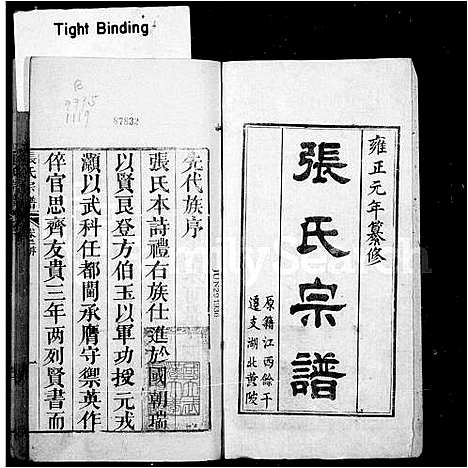 Tight Binding
雍正元年纂修
張氏宗譜
原籍江西餘干
遷支湖北黃陂
先代族序
張氏本詩禮右族仕進於國朝瑞
以賢良登方伯玉以軍功授元戎
灝以武科任都閫承膺守禦英作
倅官思齊友貴三年两列賢書而
張氏宗譜
87832
JUN 29 1936
FamilySearch